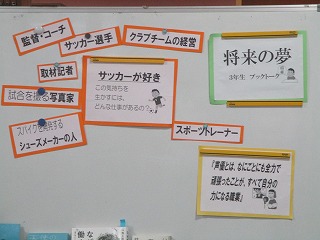 監督・コーチ
サッカー選手
クラブチームの経営
取材記者
試合を撮る写真家
スパイクを開発する
シューズメーカーの人
サッカーが好き
この気持ちを
生かすには、
どんな仕事があるの？
スポーツトレーナー
将来の夢
3年生 ブックトーク
『声優とは、なにごとにも全力で
頑張ったことが、すべて自分の
力になる職業』